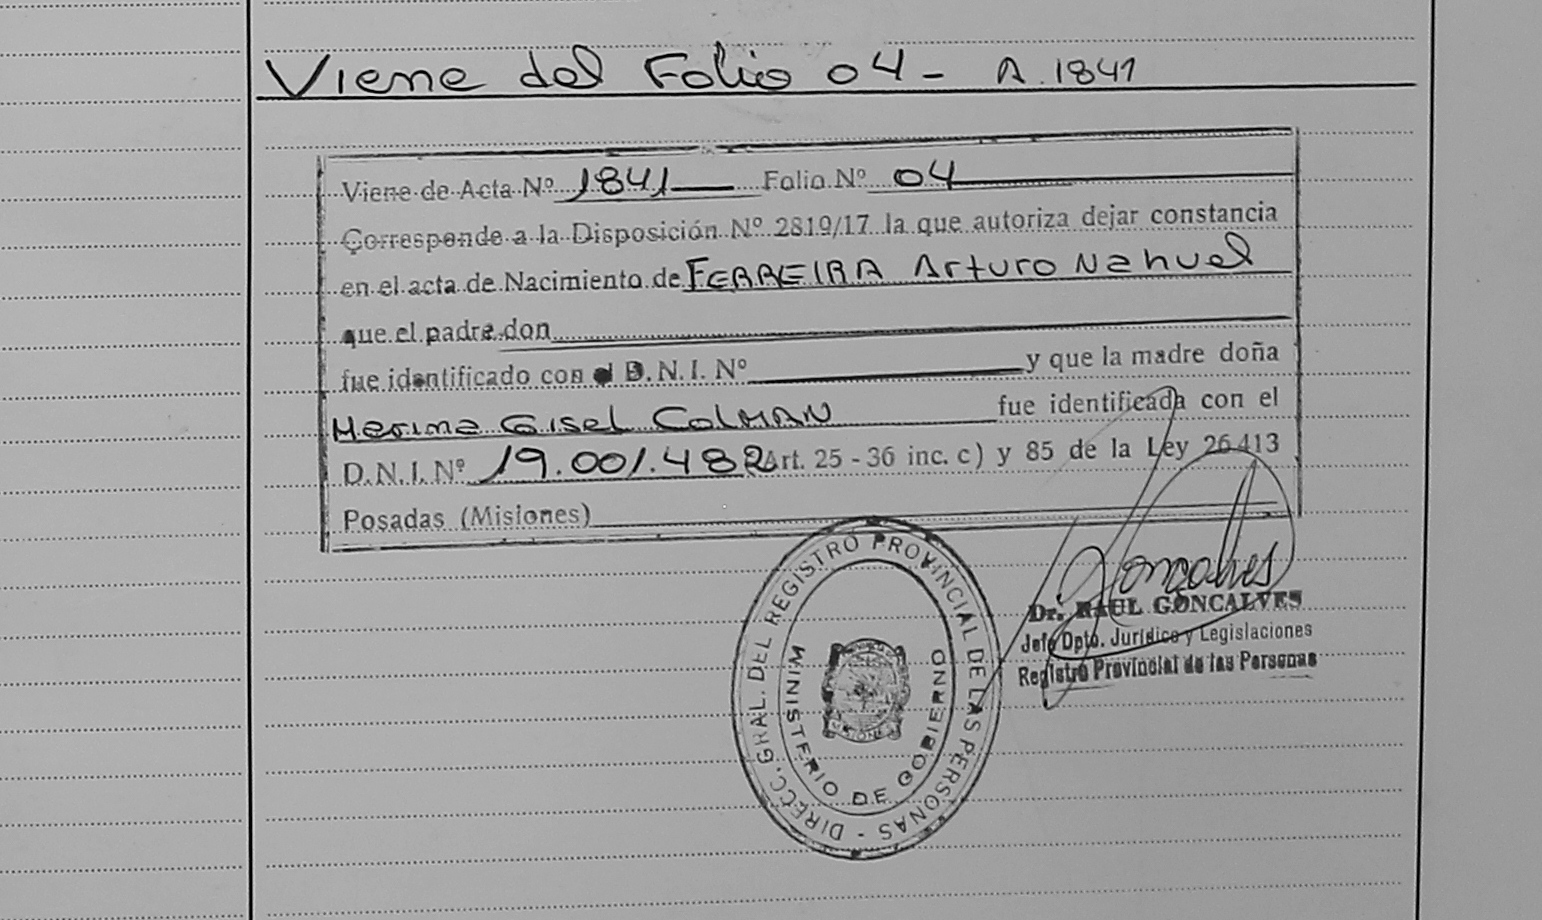 Viene del Folio 04 - A. 1841
Viene de Acta Nº 1841 Folio Nº 04
Corresponde a la Disposición Nº 2819/17 la que autoriza dejar constancia
en el acta de Nacimiento de FERREIRA Arturo Nahuel
que el padre don
fue identificado con el D.N.I. Nº y que la madre doña
Marina Gisel Colman fue identificada con el
D.N.I. Nº 19.001.482 (Art. 25 - 36 inc. c) y 85 de la Ley 26.413
Posadas (Misiones)
DIRECC. GRAL. DEL REGISTRO PROVINCIAL DE LAS PERSONAS -
MINISTERIO DE GOBIERNO
MISIONES
Goncalves
Dr. RAUL GONCALVES
Jefe Dpto. Jurídico y Legislaciones
Registro Provincial de las Personas